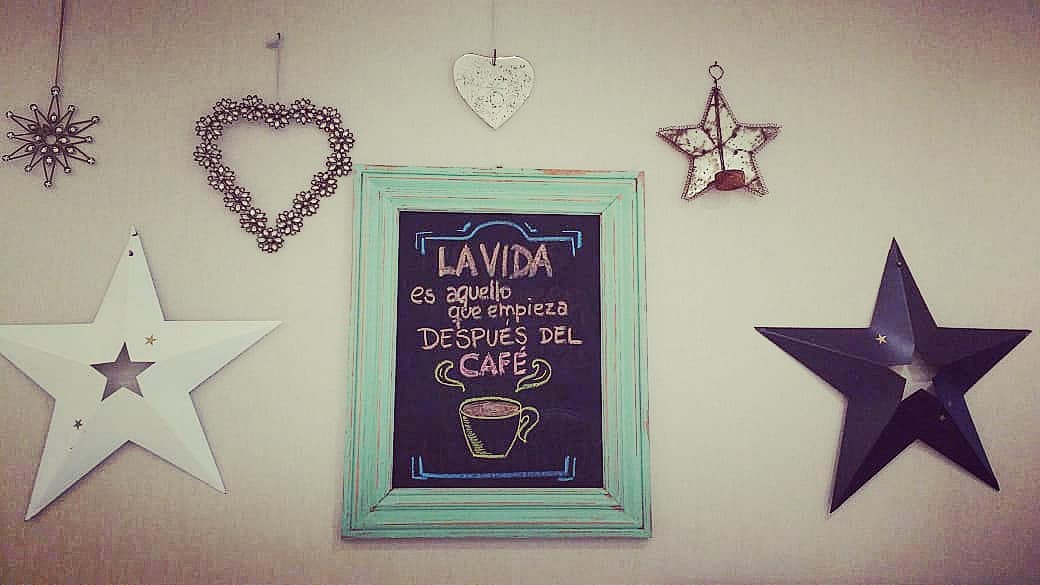 LA VIDA
es aquello
que empieza
DESPUÉS DEL
CAFÉ